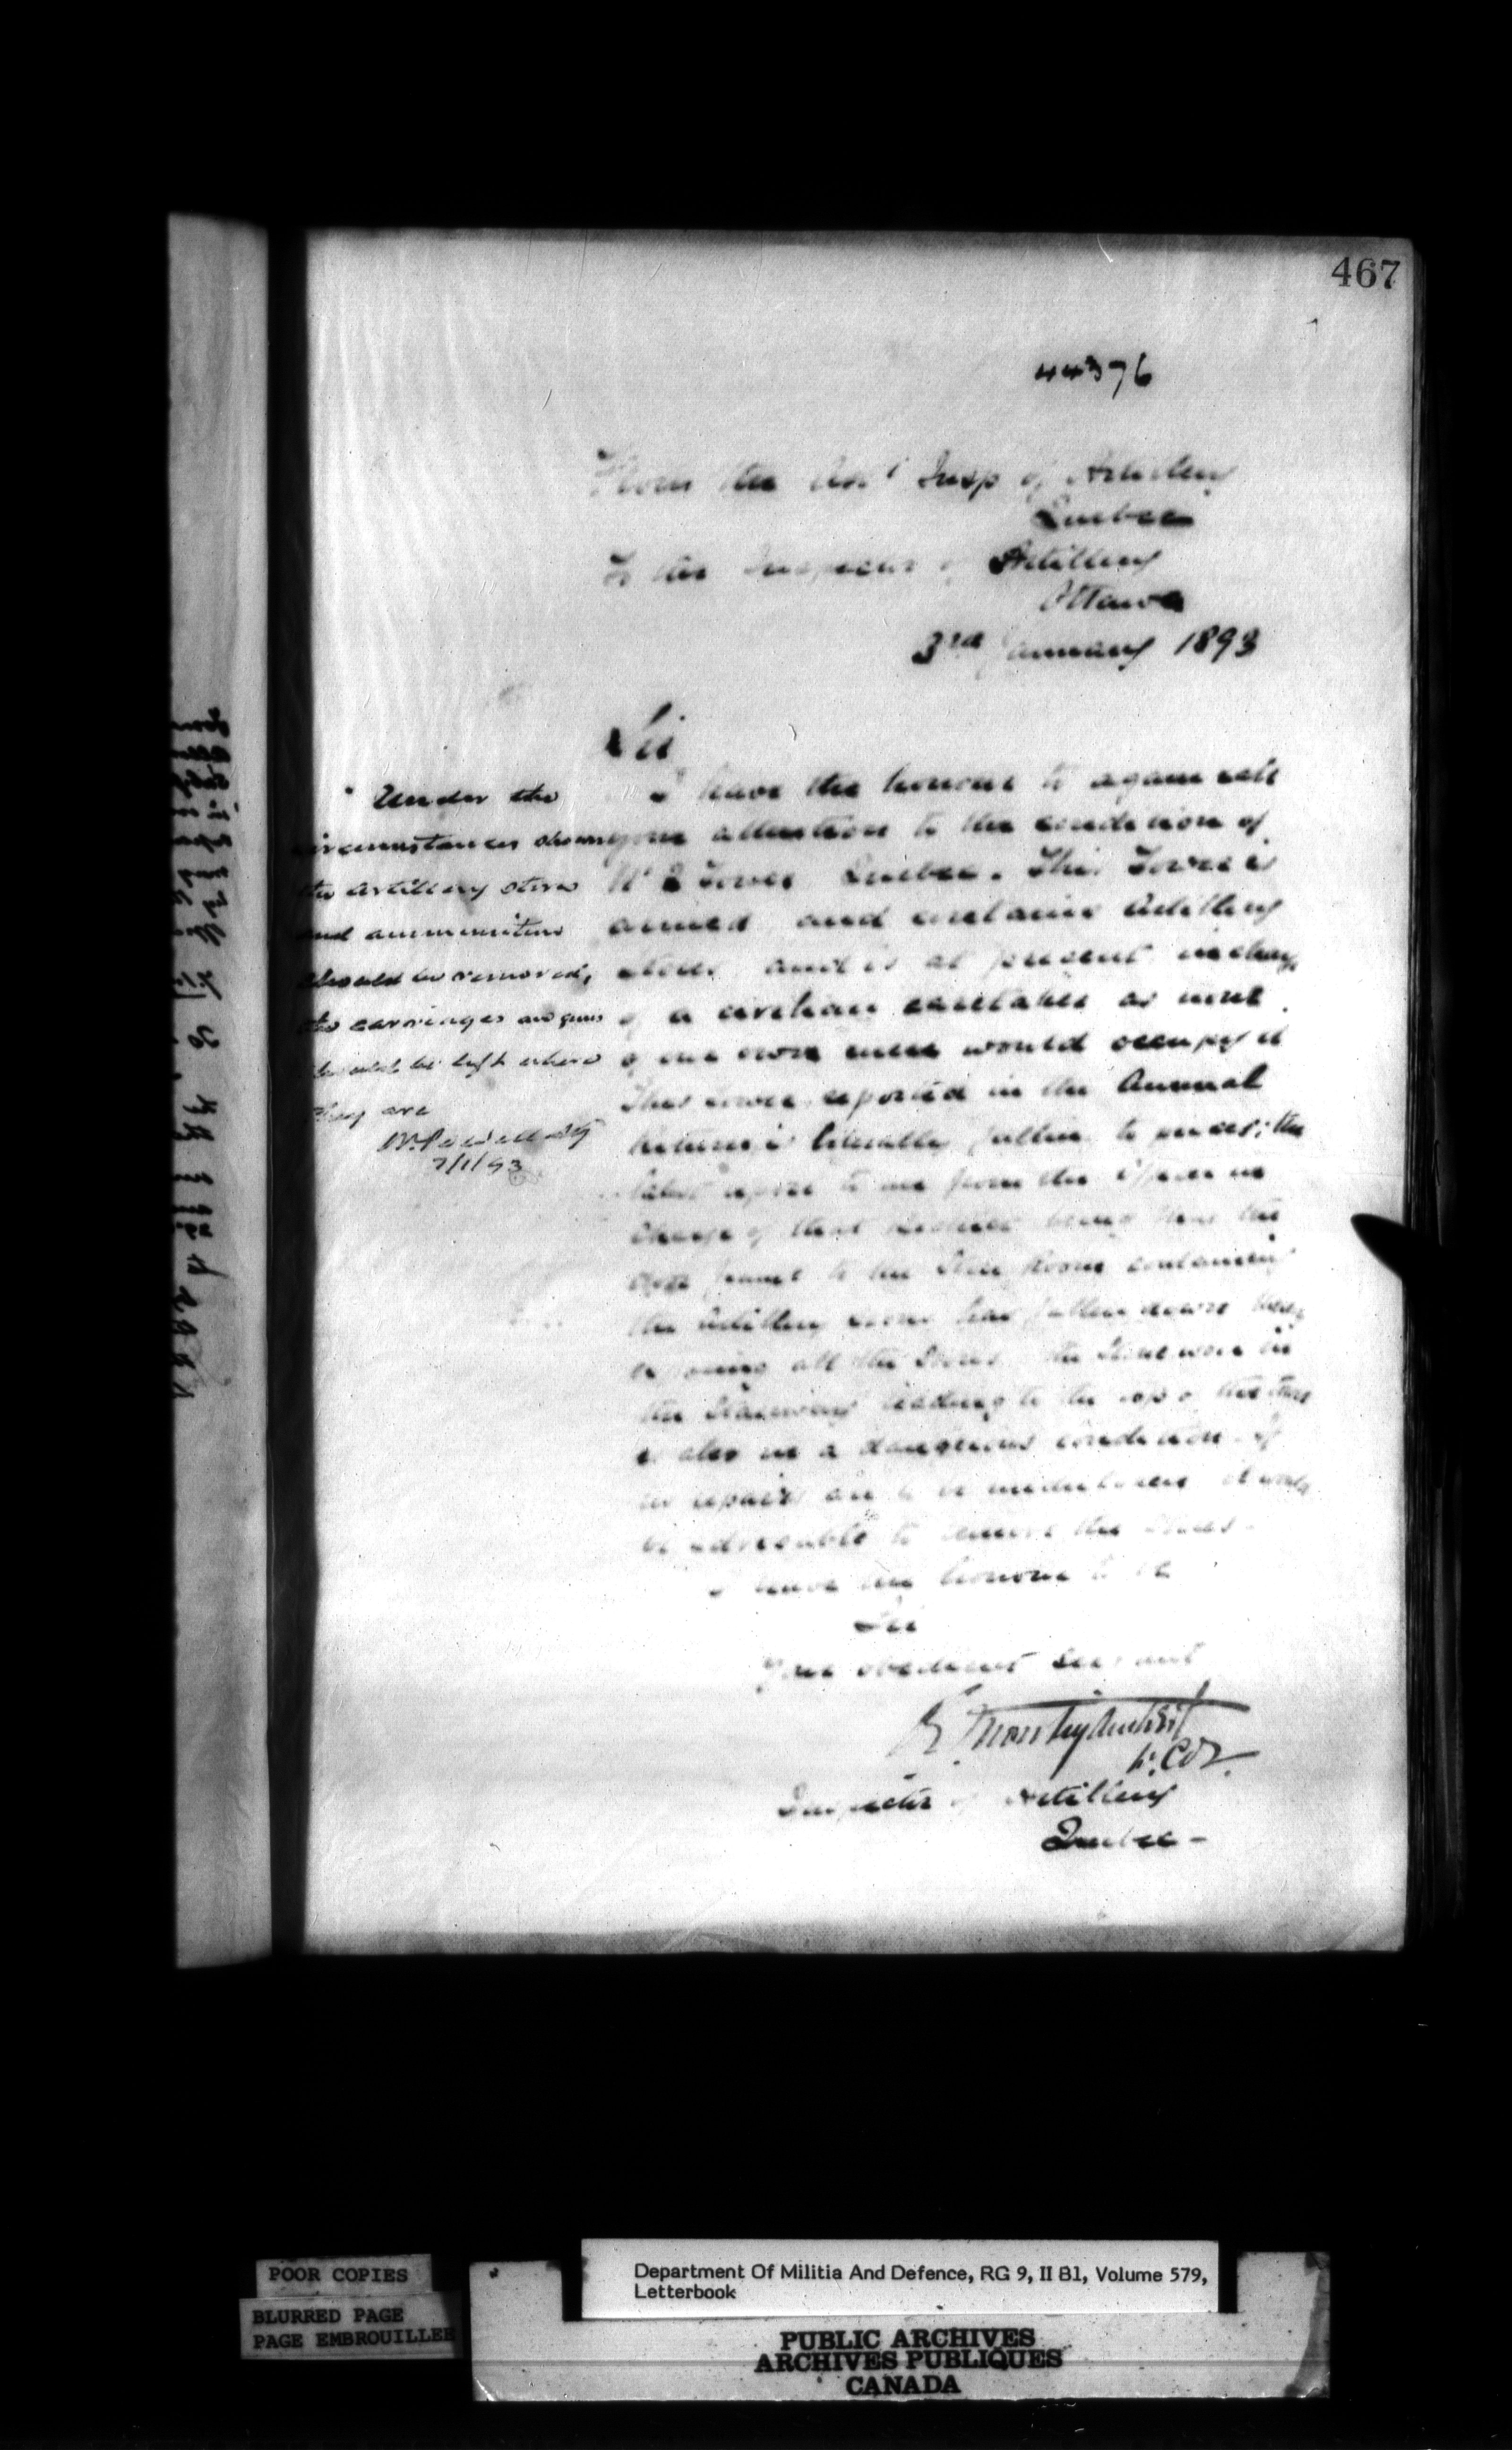 467
44376
From the Asst Insp of Artillery
Quebec
To the Inspector of Artillery
Ottawa
3rd January 1893
Sir
I have the honour to again call
your attention to the condition of
No 2 Tower Quebec. This Tower is
armed and contains Artillery
Stores and is at present in charge
of a civilian caretaker as none
of our own men would occupy it
This tower reported in the Annual
Returns is literally falling to pieces; the
latest report to me from the officer in
charge of that District being that the
door frame to the Store Room containing
the Artillery Stores has fallen down
exposing all the Stores. the Stone work in
the Stairway leading to the top of the tower
is also in a dangerous condition. If
no repairs are to be undertaken it would
be advisable to remove the Stores.
I have the honour to be
Sir
Your obedient Servant
Lt. Col.
Inspector of Artillery
Quebec -
Under the
circumstances shown
the artillery stores
and ammunition
should be removed,
the carriages and guns
should be left where
they are
W. Powell AG
7/1/93
POOR COPIES
BLURRED PAGE
PAGE EMBROUILLEE
Department Of Militia And Defence, RG 9, II B1, Volume 579,
Letterbook
PUBLIC ARCHIVES
ARCHIVES PUBLIQUES
CANADA